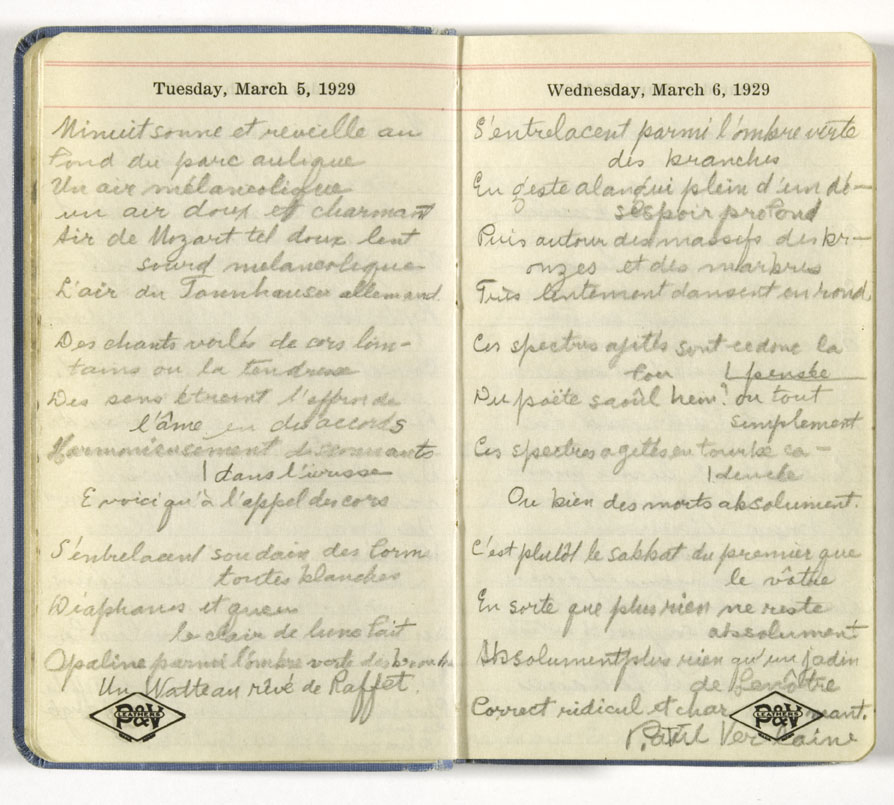 Tuesday, March 5, 1929
Minuit sonne et reveille au
fond du parc aulique
Un air mélancolique
un air doux et charmant
Air de Mozart tel doux lent
sourd melancolique
L'air du Tannhauser allemand
Des chants voilés de cors loin-
tains ou la tendresse
Des sens étreint l'effroi de
l'âme en des accords
Harmonieusement dissonnants
| dans l'ivresse
E voici qu'à l'appel des cors
S'entrelacent soudain des form
toutes blanches
Diaphanes et que
le clair de lune fait
Opaline parmi l'ombre verte des branches
Un Watteau rêvé de Raffet.
P&V
LEATHERS
Wednesday, March 6, 1929
S'entrelacent parmi l'ombre verte
des branches
En geste alangui plein d'un dé-
sespoir profond
Puis autour des massifs des br-
onzes et des marbres
Très lentement dansent en rond
Ces spectres agités sont-ce donc la
| pensée
Du poëte saoûl hein? ou tout
simplement
Ces spectres agités en tourbe ca-
| dencée
Ou bien des morts absolument.
C'est plutôt le sabbat du premier que
le vôtre
En sorte que plus rien ne reste
absolument
Absolument plus rien qu'un jadin
de Lenôtre
Correct ridicul et char mant.
Paul Verlaine
P&V
LEATHERS